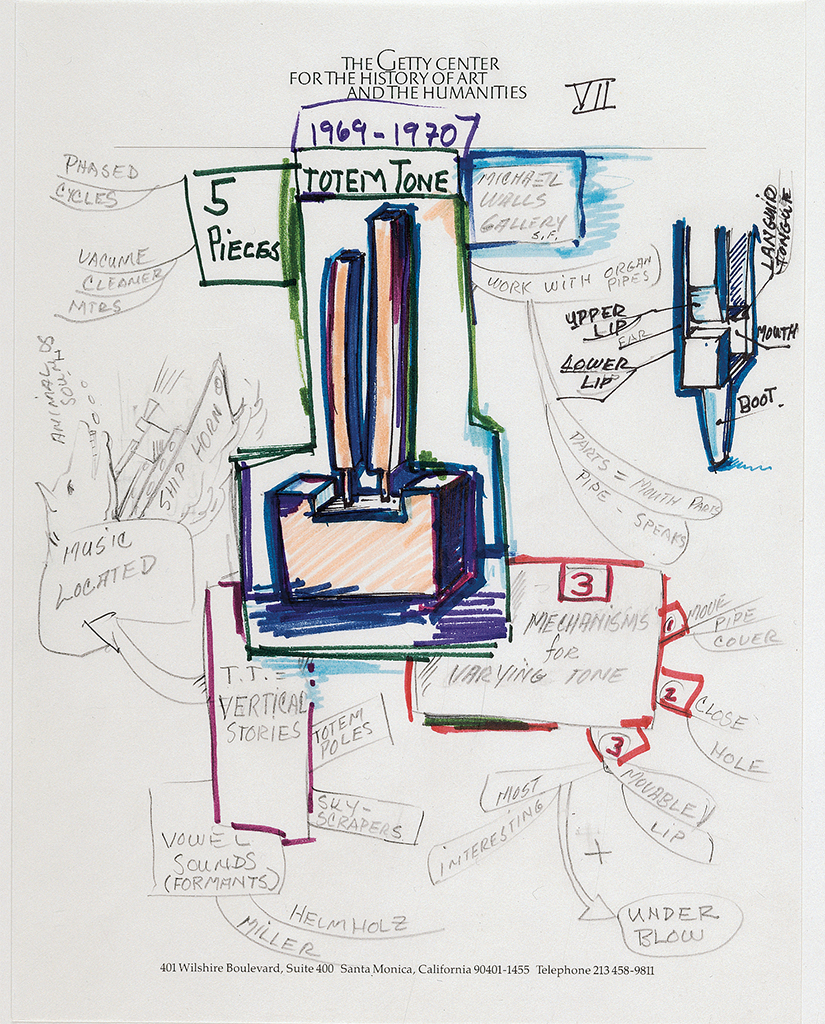 THE GETTY CENTER
FOR THE HISTORY OF ART
AND THE HUMANITIES
VII
1969-1970
TOTEM TONE
5
PIECES
PHASED
CYCLES
VACUME
CLEANER
MTRS
MICHAEL
WALLS
GALLERY
S.F.
WORK WITH ORGAN
PIPES
LANGUID
TONGUE
UPPER
LIP
EAR
MOUTH
LOWER
LIP
BOOT.
PARTS = MOUTH PARTS
PIPE - SPEAKS
ANIMAL
SOUND
SHIP HORN
MUSIC
LOCATED
3
MECHANISMS
for
VARYING TONE
1
MOVE
PIPE
COVER
2
CLOSE
HOLE
3
MOVABLE
LIP
MOST
INTERESTING
+
UNDER
BLOW
T.T. =
VERTICAL
STORIES
TOTEM
POLES
SKY-
SCRAPERS
VOWEL
SOUNDS
(FORMANTS)
HELMHOLZ
MILLER
401 Wilshire Boulevard, Suite 400 Santa Monica, California 90401-1455 Telephone 213 458-9811